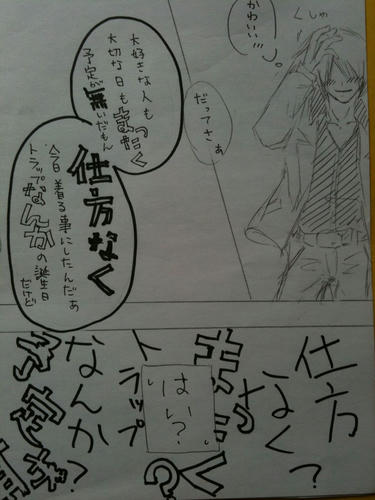 かわいい!!!
くしゃ
だってさぁ
大好きな人も
大切な日もまったく
予定が無いだもん
仕方なく
今日着る事にしたんだぁ
トラップなんかの誕生日
だけど
仕方
なく?
まったく
トラップ
はい?
なんか?